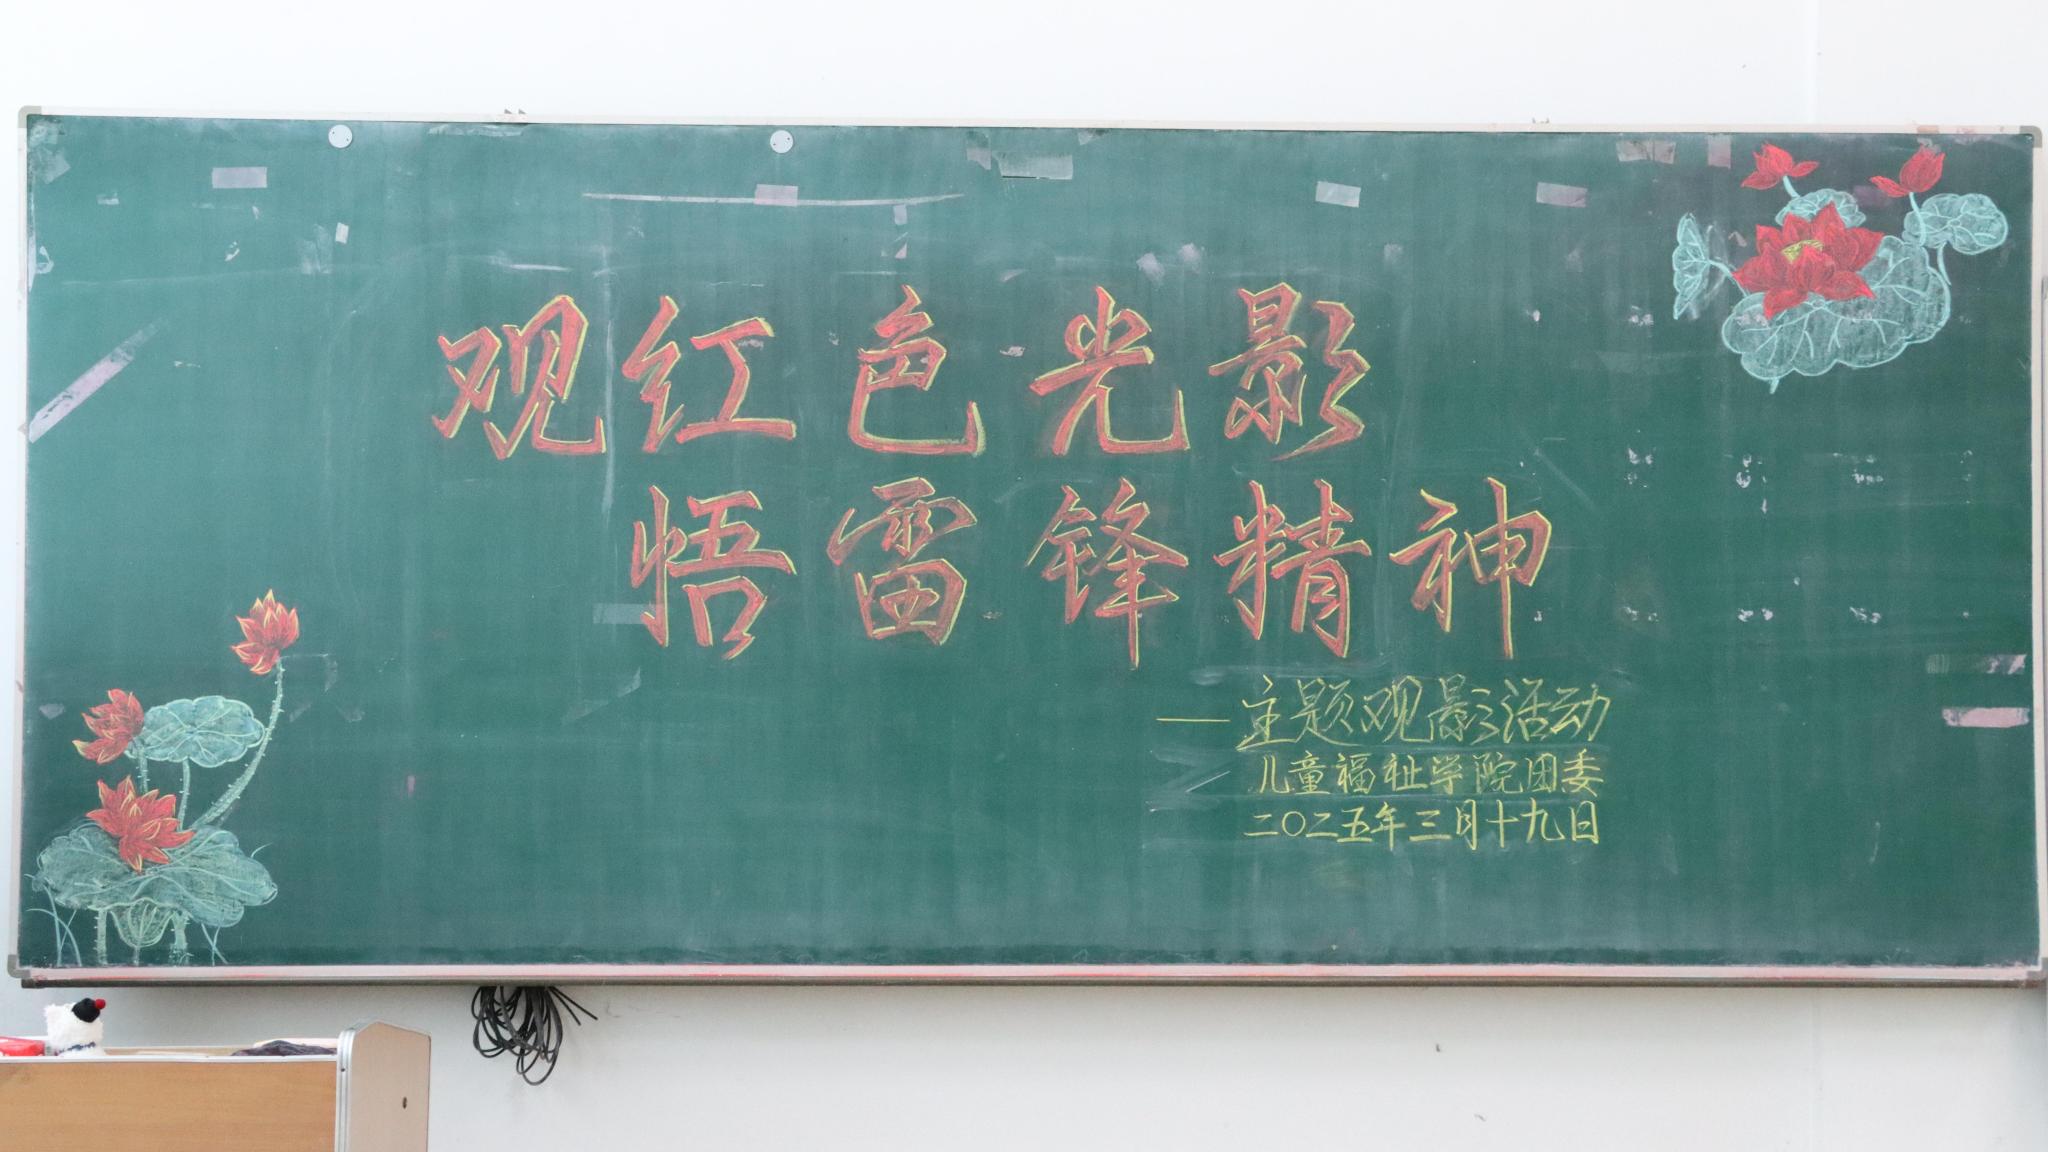 观红色光影
悟雷锋精神
——主题观影活动
儿童福祉学院团委
二〇二五年三月十九日